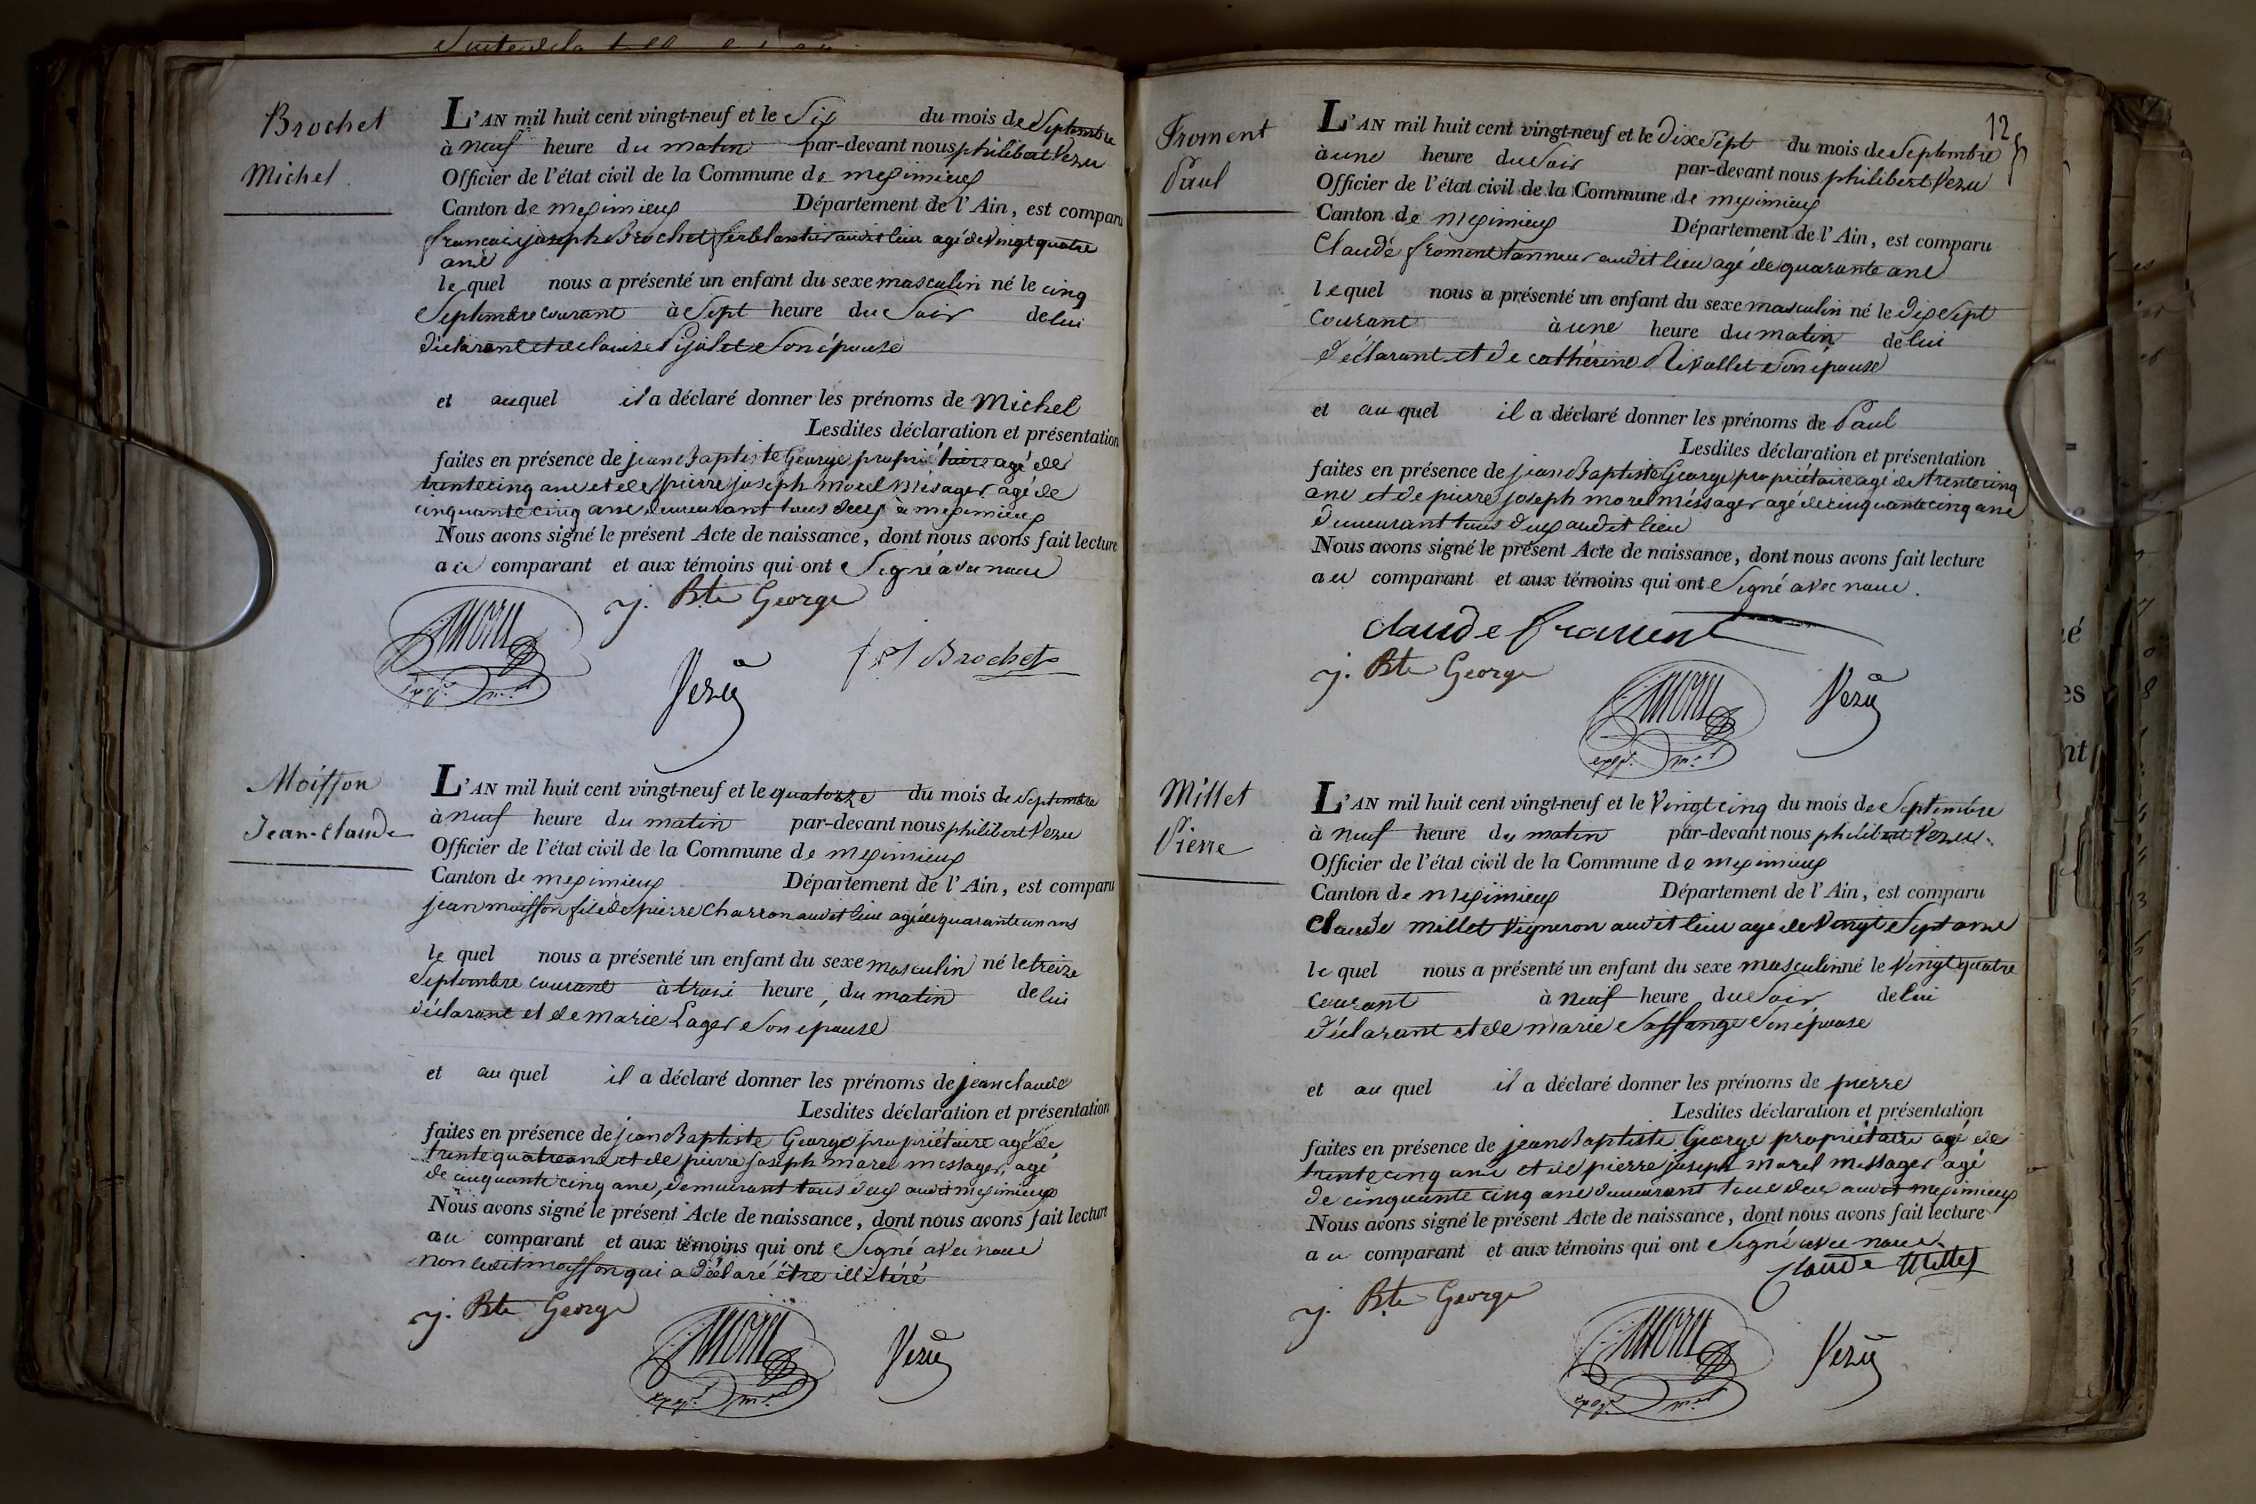 Brochet
Michel
L'AN mil huit cent vingt-neuf et le Six du mois de Septembre
à neuf heure du matin par-devant nous philibert Vezu
Officier de l'état civil de la Commune de meximieux
Canton de meximieux Département de l'Ain, est comparu
françois joseph Brochet ferblantier audit lieu agé de Vingt quatre
ans
le quel nous a présenté un enfant du sexe masculin né le cinq
Septembre courant à Sept heure du Soir de lui
déclarant et de louise Son épouse
et auquel il a déclaré donner les prénoms de Michel
Lesdites déclaration et présentation
faites en présence de jean Baptiste George propriétaire agé de
trente cinq ans et de pierre joseph morel mésager agé de
cinquante cinq ans demeurant tous deux a meximieux
Nous avons signé le présent Acte de naissance, dont nous avons fait lecture
au comparant et aux témoins qui ont Signé avec nous
j. Bte George
Brochet
Vezu
Moisson
Jean-Claude
L'AN mil huit cent vingt-neuf et le quatorze du mois de Septembre
à neuf heure du matin par-devant nous philibert Vezu
Officier de l'état civil de la Commune de meximieux
Canton de meximieux Département de l'Ain, est comparu
jean moisson fils de pierre Charron audit lieu agé de quarante un ans
le quel nous a présenté un enfant du sexe masculin né le treize
Septembre courant à trois heure du matin de lui
déclarant et de marie Lager Son épouse
et au quel il a déclaré donner les prénoms de jean claude
Lesdites déclaration et présentation
faites en présence de jean Baptiste George propriétaire agé de
trente quatre ans et de pierre joseph morel messager, agé
de cinquante cinq ans, demeurant tous deux audit meximieux
Nous avons signé le présent Acte de naissance, dont nous avons fait lecture
au comparant et aux témoins qui ont Signé avec nous
non ledit moisson qui a déclaré être illitéré
j. Bte George
Vezu
12
Froment
Paul
L'AN mil huit cent vingt-neuf et le dix Sept du mois de Septembre
à une heure du Soir par-devant nous philibert Vezu
Officier de l'état civil de la Commune de meximieux
Canton de meximieux Département de l'Ain, est comparu
Claude froment tanneur audit lieu agé de quarante ans
lequel nous a présenté un enfant du sexe masculin né le dix Sept
courant à une heure du matin de lui
déclarant et de cathérine Rivollet Son épouse
et au quel il a déclaré donner les prénoms de Paul
Lesdites déclaration et présentation
faites en présence de jean Baptiste George propriétaire agé de trente cinq
ans et de pierre joseph morel méssager agé de cinquante cinq ans
demeurant tous deux audit lieu
Nous avons signé le présent Acte de naissance, dont nous avons fait lecture
au comparant et aux témoins qui ont Signé avec nous.
Claude froment
j. Bte George
Vezu
Millet
Pierre
L'AN mil huit cent vingt-neuf et le Vingt cinq du mois de Septembre
à neuf heure du matin par-devant nous philibert Vezu
Officier de l'état civil de la Commune de meximieux
Canton de meximieux Département de l'Ain, est comparu
Claude millet Vigneron audit lieu agé de Vingt Sept ans
le quel nous a présenté un enfant du sexe masculin né le Vingt quatre
courant à neuf heure du Soir de lui
déclarant et de marie Saffange Son épouse
et au quel il a déclaré donner les prénoms de pierre
Lesdites déclaration et présentation
faites en présence de jean Baptiste George propriétaire agé de
trente cinq ans et de pierre joseph morel messager agé
de cinquante cinq ans demeurant tous deux audit meximieux
Nous avons signé le présent Acte de naissance, dont nous avons fait lecture
au comparant et aux témoins qui ont Signé avec nous
Claude Millet
j. Bte George
Vezu